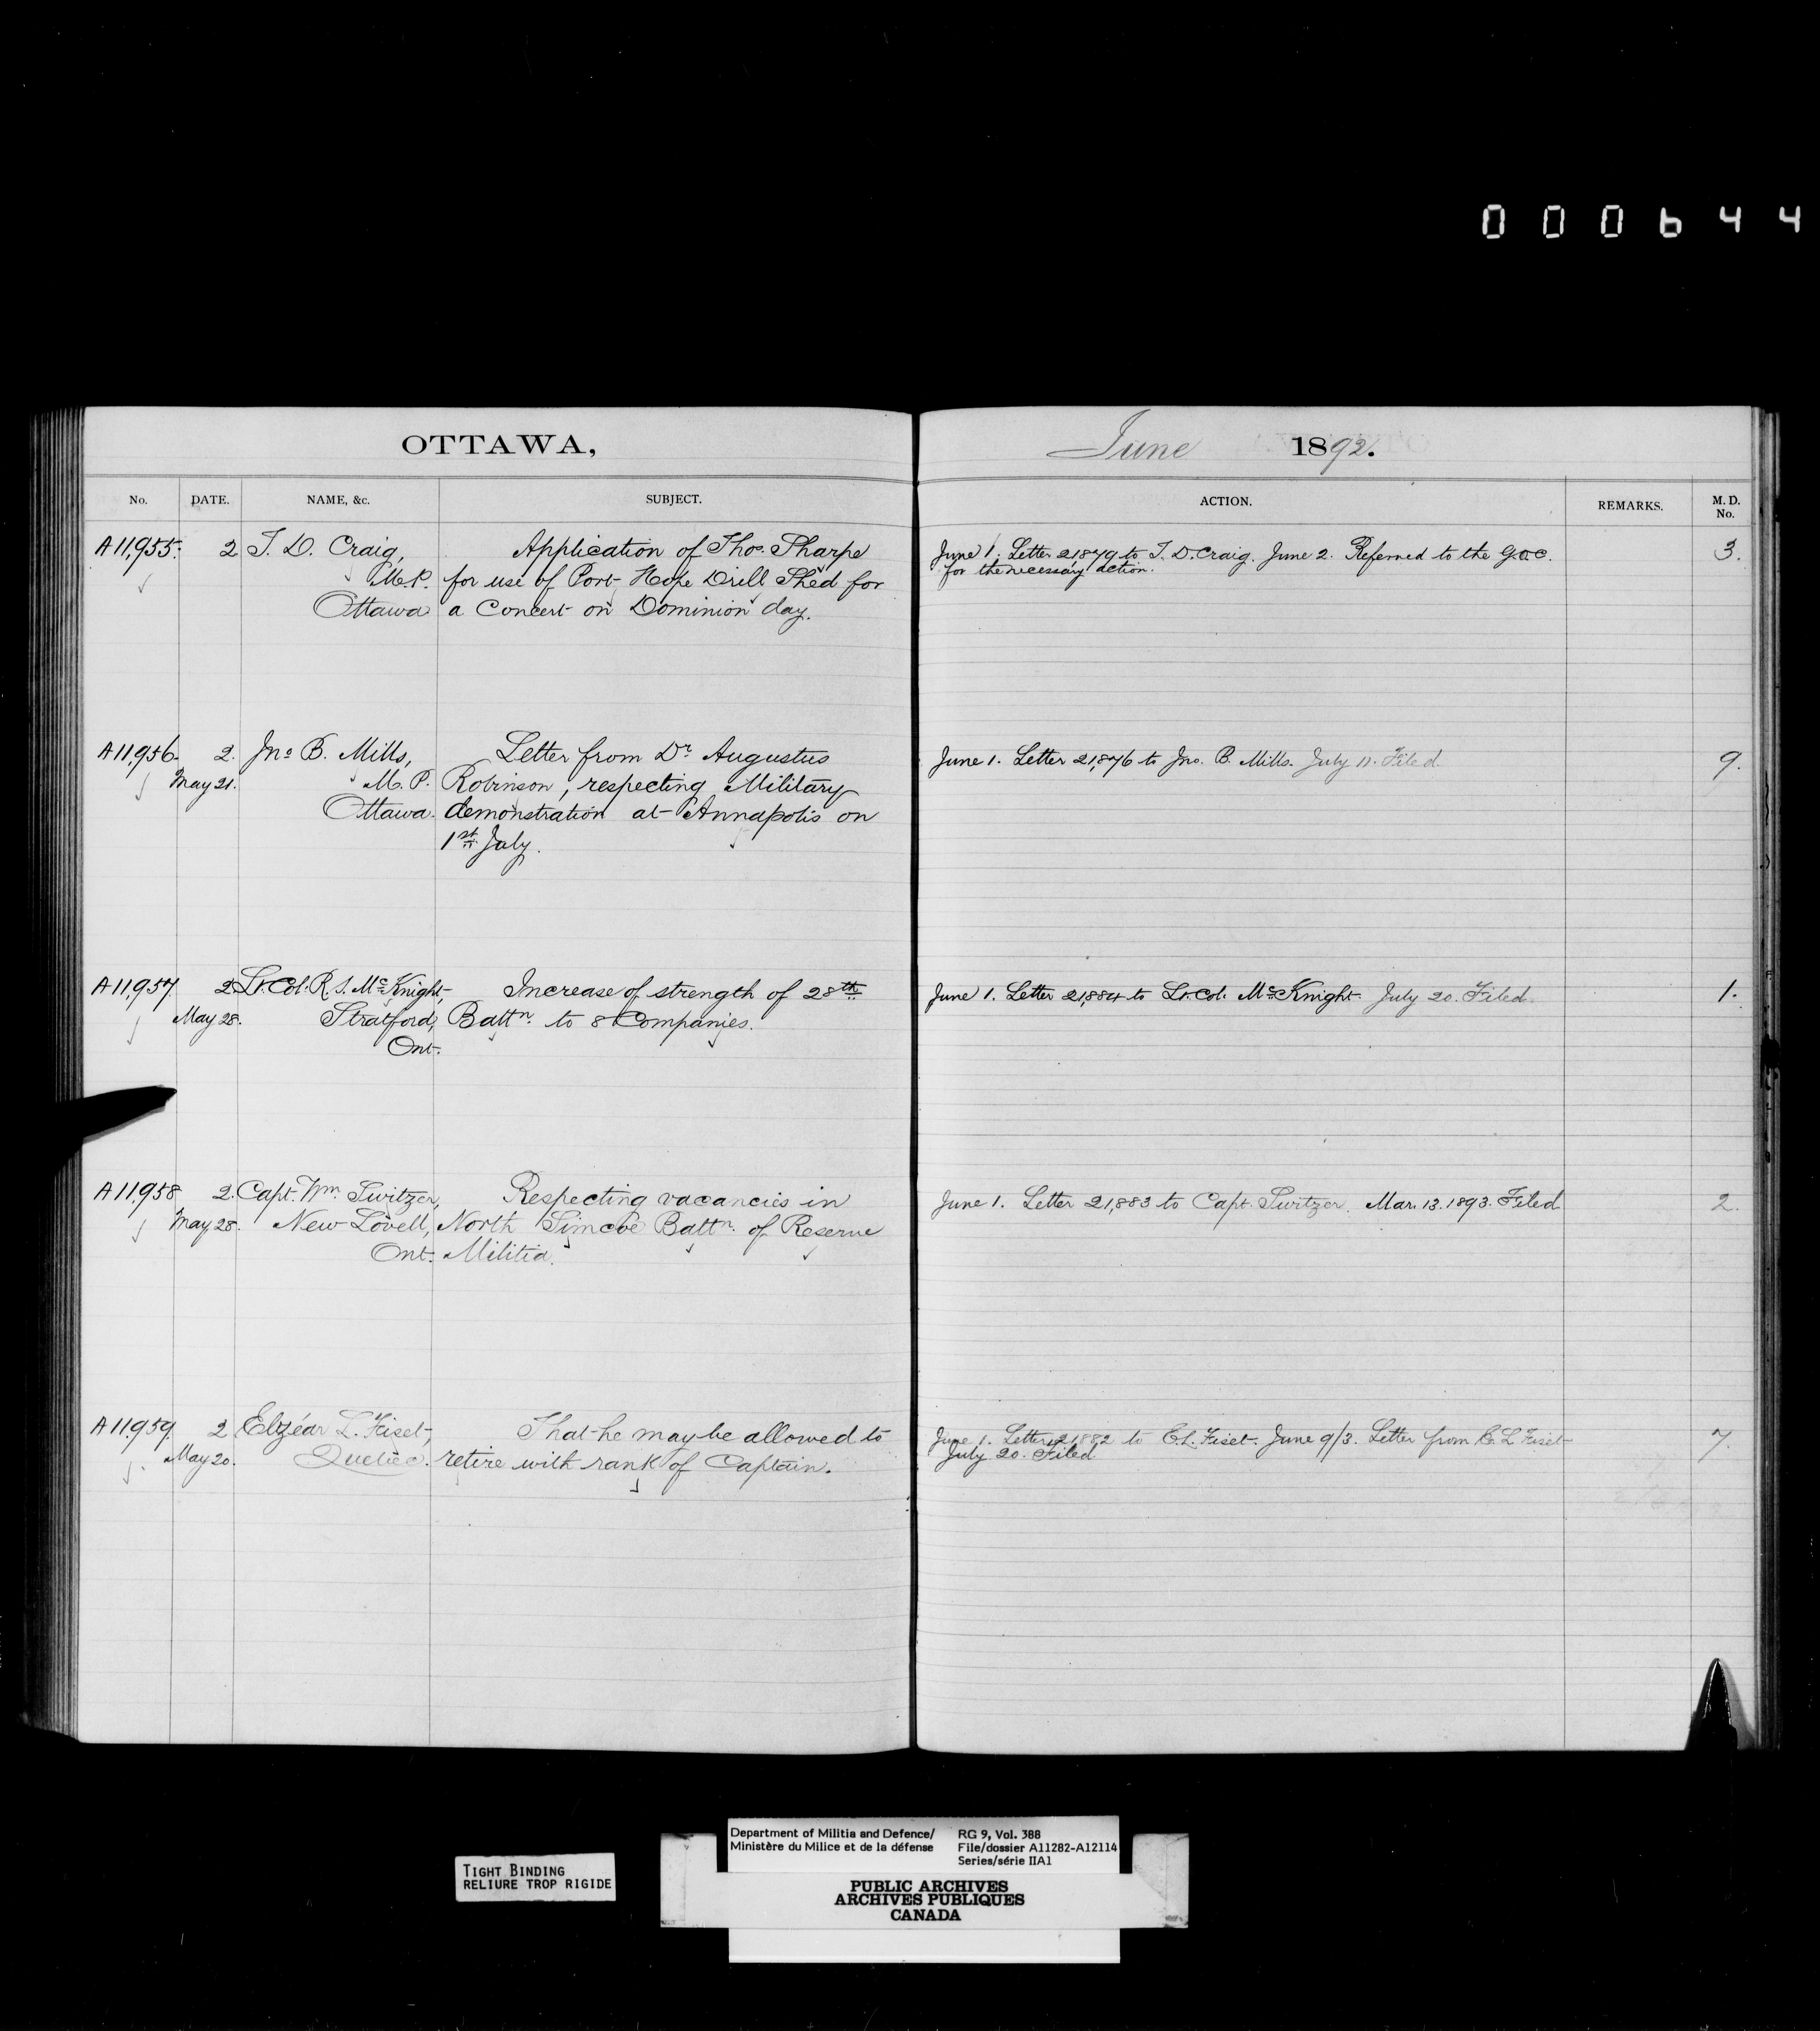 000644
OTTAWA,
June 1892.
No. DATE. NAME, &c. SUBJECT. ACTION. REMARKS. M. D. No.
A 11,955. 2 T. D. Craig, Application of Thos. Sharpe
M.P. for use of Port Hope Drill Shed for
Ottawa a Concert on Dominion day.
June 1. Letter 21879 to T. D. Craig. June 2. Referred to the G.O.C. 3.
for the necessary action.
A 11,956 2. Jno B. Mills, Letter from Dr. Augustus
May 21. M. P. Robinson, respecting Military
Ottawa. demonstration at Annapolis on
1st July.
June 1. Letter 21,876 to Jno. B. Mills. July 11. Filed. 9.
A 11,957 2. Lt. Col. R. S. McKnight, Increase of strength of 28th
May 28. Stratford, Battn. to 8 Companies.
Ont.
June 1. Letter 21,884 to Lt. Col. McKnight. July 20. Filed. 1.
A 11,958 2. Capt. Wm. Switzer, Respecting vacancies in
May 28. New Lovell, North Simcoe Battn. of Reserve
Ont. Militia.
June 1. Letter 21,883 to Capt. Switzer. Mar. 13. 1893. Filed 2.
A 11,959. 2 Elzéar L. Fiset, That he may be allowed to
May 20. Quebec. retire with rank of Captain.
June 1. Letter 21882 to E. L. Fiset. June 9/3. Letter from E. L Fiset 7.
July 20. Filed
TIGHT BINDING
RELIURE TROP RIGIDE
Department of Militia and Defence/ RG 9, Vol. 388
Ministère du Milice et de la défense File/dossier A11282-A12114
Series/série IIA1
PUBLIC ARCHIVES
ARCHIVES PUBLIQUES
CANADA